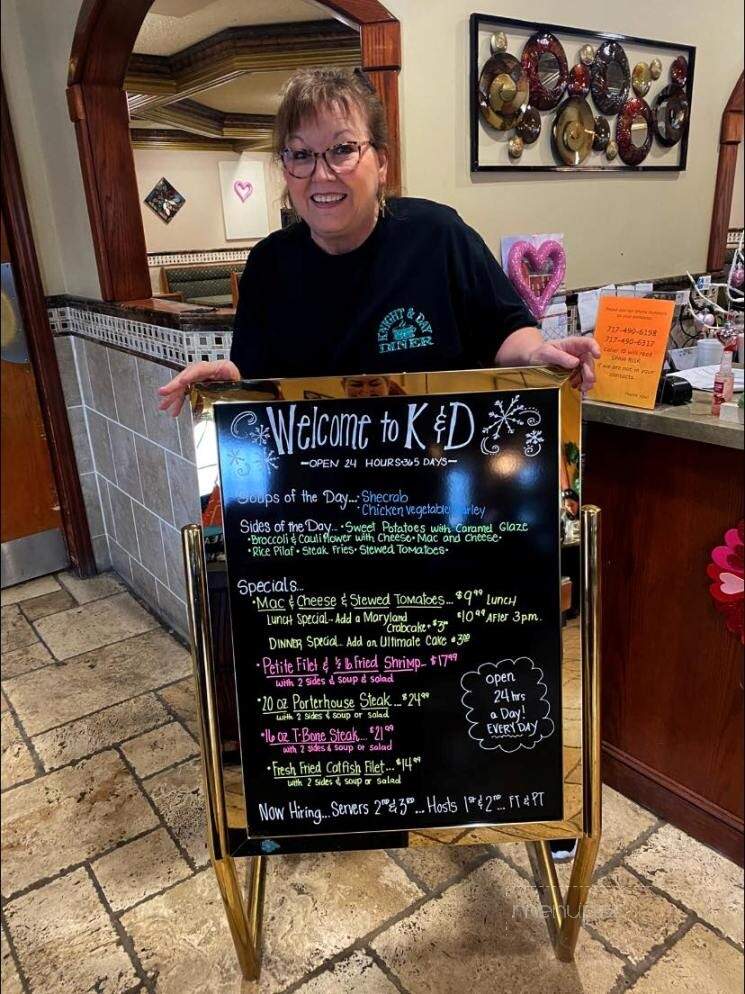 KNIGHT & DAY
DINER
Please add these numbers
to your contacts.
717-490-6158
717-490-6317
Caller ID will read
SPAM RISK
if we are not in your
contacts.
Thank you!
Welcome to K & D
—OPEN 24 HOURS•365 DAYS—
Soups of the Day...•Shecrab
Chicken vegetable Barley
Sides of the Day... •Sweet Potatoes with Caramel Glaze
•Broccoli & Cauliflower with Cheese• Mac and Cheese•
•Rice Pilaf • Steak Fries• Stewed Tomatoes•
Specials...
•Mac & Cheese & Stewed Tomatoes... $9.99 Lunch
Lunch Special.. Add a Maryland $10.99 After 3pm.
Crabcake • $3.00
Dinner Special.. Add an Ultimate Cake • 3.00
•Petite Filet & ½ lb Fried Shrimp.. $17.99
with 2 sides & soup & salad
•20 oz Porterhouse Steak.... $24.99
with 2 sides & soup or salad
•16 oz T-Bone Steak.... $21.99
with 2 sides & soup or salad
•Fresh Fried Catfish Filet... $14.99
with 2 sides & soup or salad
open
24 hrs
a Day!
EVERYDAY
Now Hiring... Servers 2nd & 3rd ... Hosts 1st & 2nd ... FT & PT